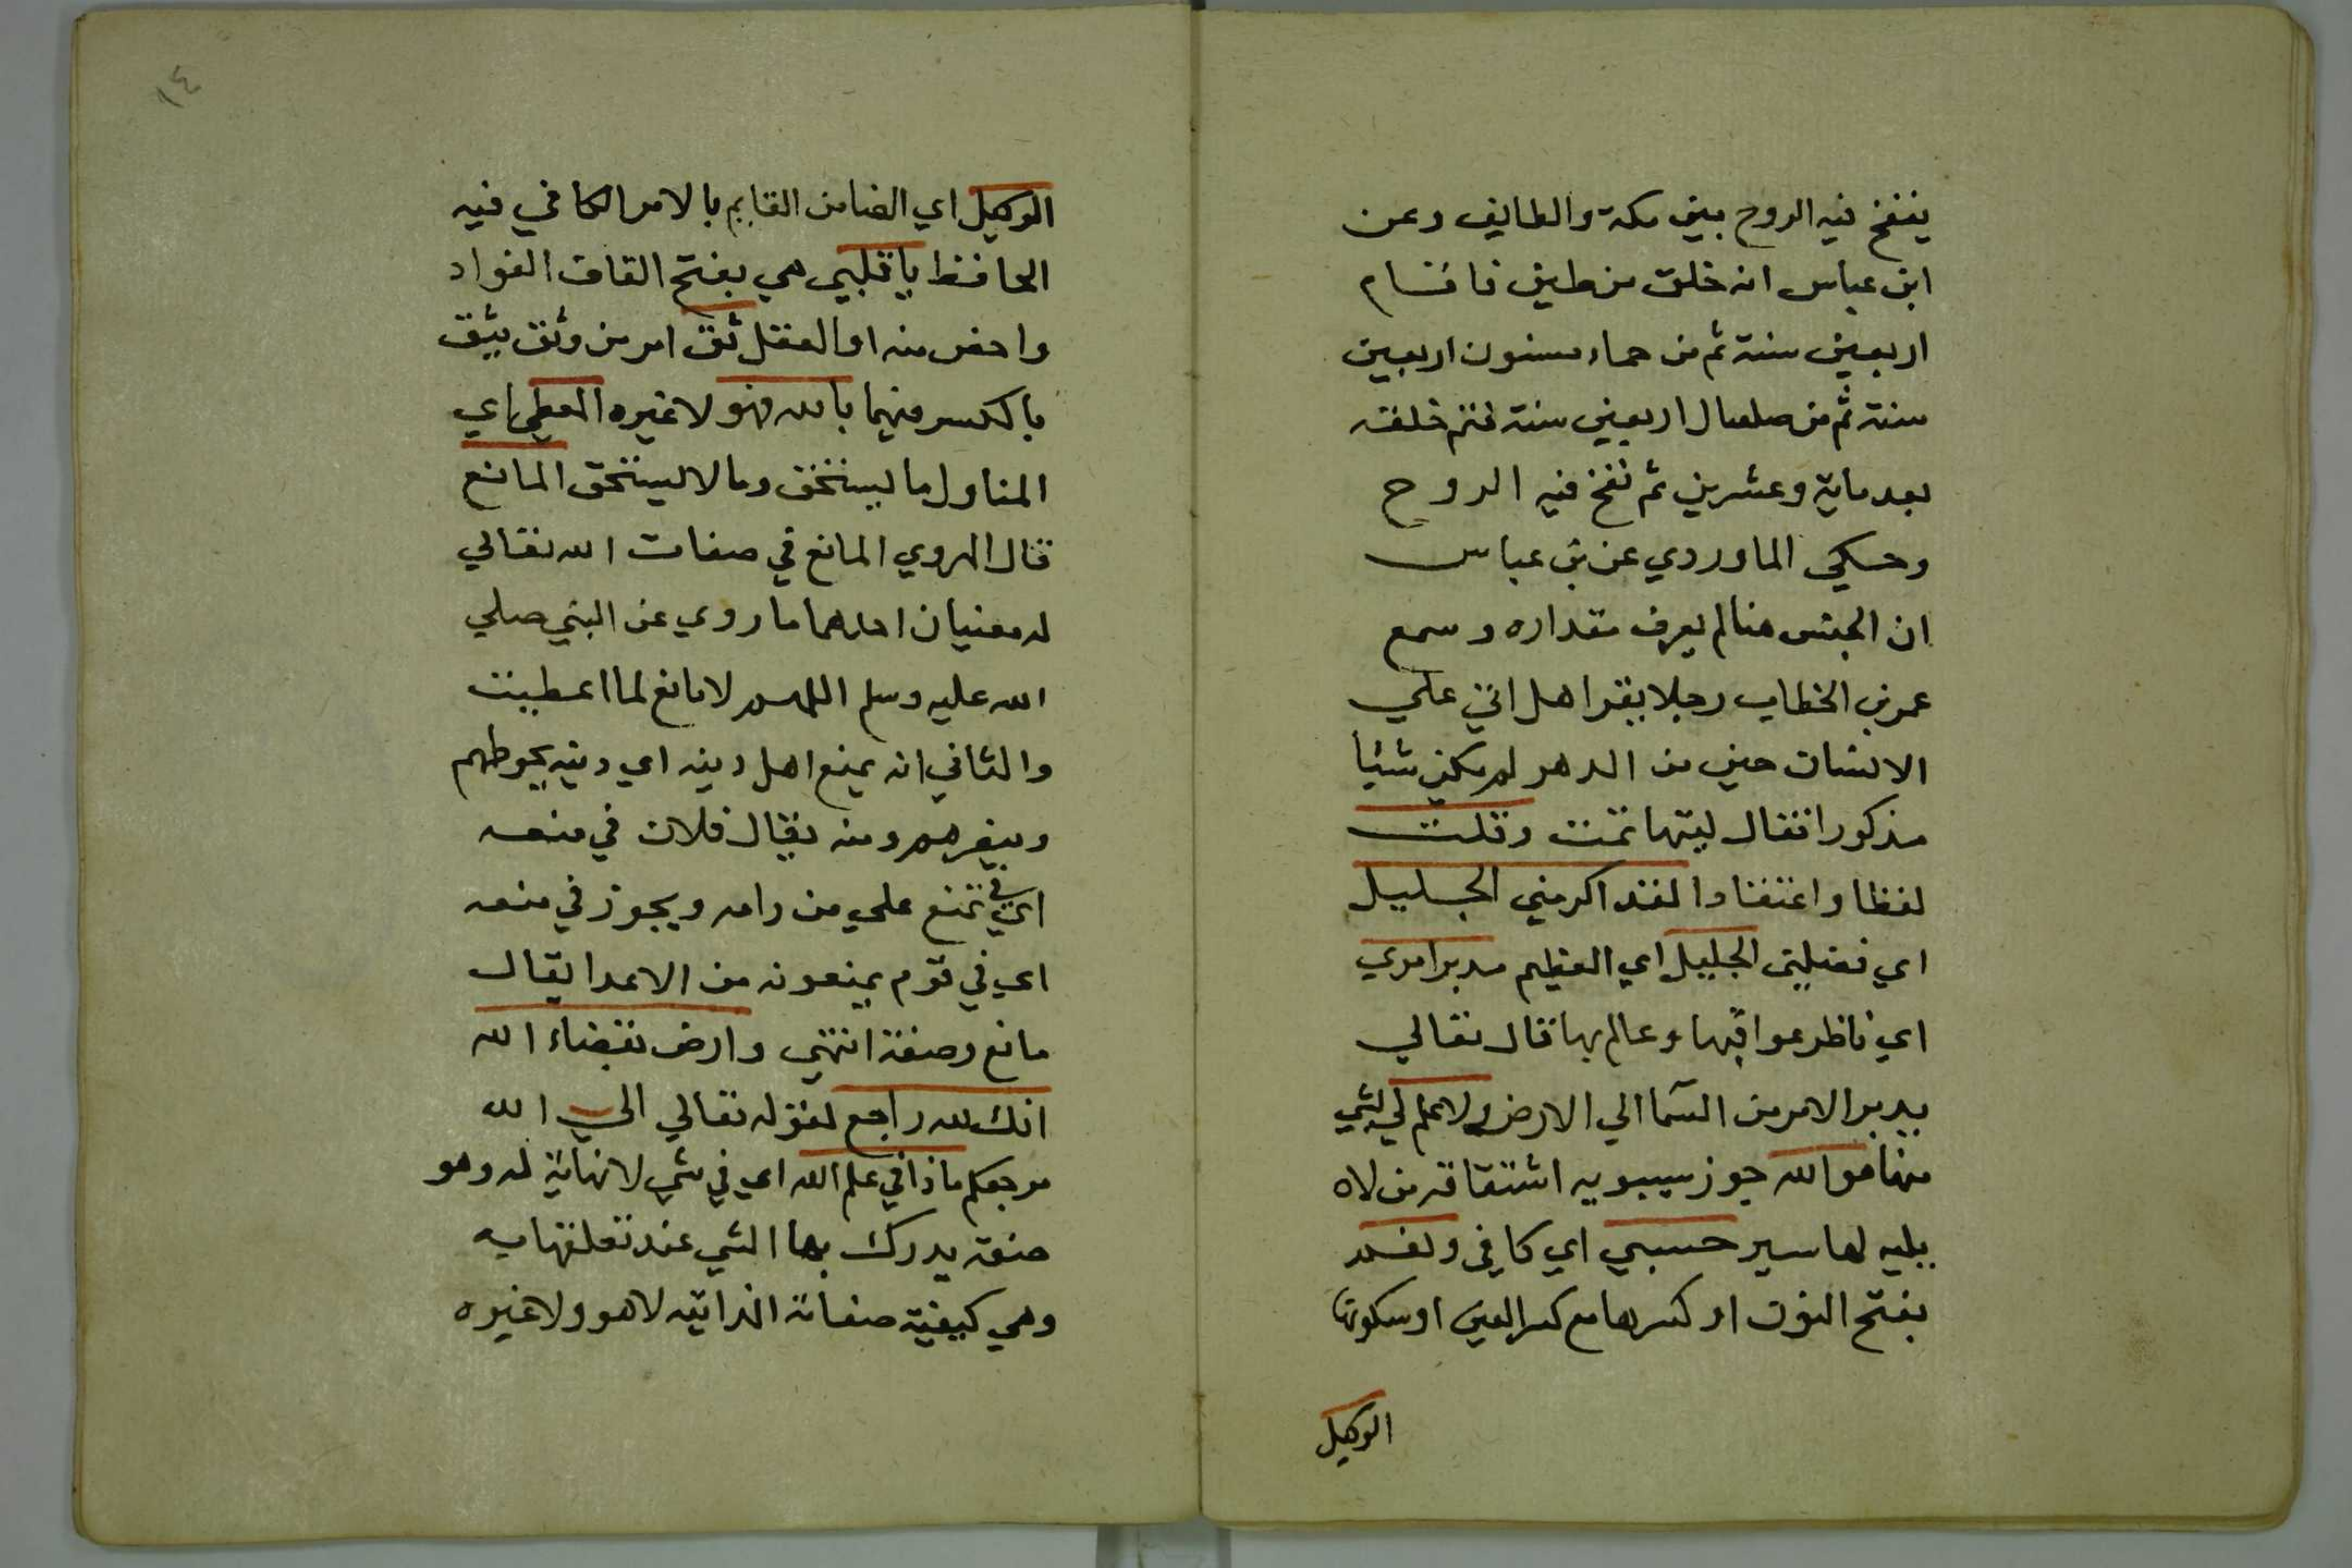 ينفخ فيه الروح بين مكة والطايف وعن
ابن عباس انه خلق من طين فاقام
اربعين سنة ثم من حماء مسنون اربعين
سنة ثم من صلصال اربعين سنة فتم خلقه
بعد ماية وعشرين ثم نفخ فيه الروح
وحكي الماوردي عن بن عباس
ان الحين هنا لم يعرف مقداره وسمع
عمر بن الخطاب رجلا يقرا هل اتي علي
الانسان حين من الدهر لم يكن شئيا
مذكورا فقال ليتها تمت وقلت
لفظا واعتقادا لقد اكرمني الجليل
اي فضلني الجليل اي العظيم مدبر امري
اي ناظر عواقبها وعالم بها قال تعالي
يدبر الامر من السما الي الارض ولا علم لي بشي
منها هو الله جوز سيبويه اشتقاقه من لاه
يليه لها سير حسبي اي كافي ونعم
بفتح النون او كسرها مع كسر العين او سكونها
الوكيل
١٤
الوكيل اي الضامن القايم بالامر الكافي فيه
الحافظ يا قلبي هي بفتح القاف الفواد
واخص منه او العقل ثق امر من وثق يثق
بالكسر فيهما بالله فهو لا غيره المعطي اي
المناول ما يستحق وما لا يستحق المانع
قال الهروي المانع في صفات الله تعالي
له معنيان احدهما ما روي عن النبي صلي
الله عليه وسلم اللهم لا مانع لما اعطيت
والثاني انه يمنع اهل دينه اي دينه يحوطهم
وينصرهم ومنه يقال فلان في منعه
اي في تمنع علي من رامه ويجوز في منعه
اي في قوم يمنعونه من الاعدا يقال
مانع ومنعة انتهي وارض بقضاء الله
انك لله راجع لقوله تعالي الي الله
مرجعكم ماذا في علم الله اي في شي لا نهاية له وهو
صفة يدرك بها الشي عند تعلقها به
وهي كبقية صفاته الذاتيه لا هو ولا غيره